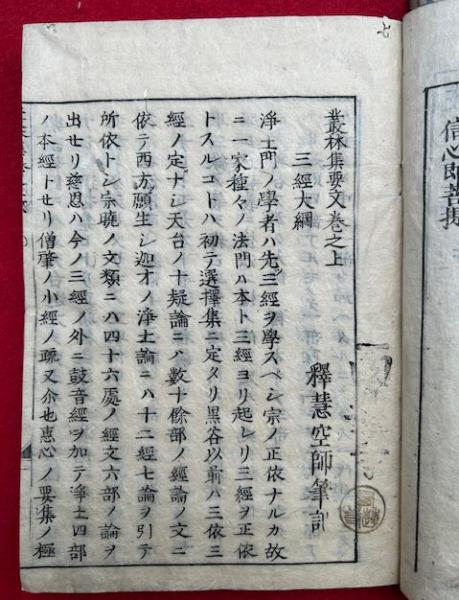 信心即菩提
叢林集要文卷之上
釋慧空師筆記
三經大綱
淨土門ノ學者ハ先ツ三經ヲ學スベシ宗ノ正依ナルカ故
ニ一家種々ノ法門ハ本ト三經ヨリ起レリ三經ヲ正依
トスルコトハ初テ選擇集ニ定タリ黒谷以前ハ三依三
經ノ定ナシ天台ノ十疑論ニハ數十餘部ノ經論ノ文ニ
依テ西方願生シ迦才ノ淨土論ニハ十二經七論ヲ引テ
所依トシ宗曉ノ文類ニハ四十六處ノ經文六部ノ論ヲ
出セリ慈恩ハ今ノ三經ノ外ニ鼓音經ヲ加テ淨土四部
ノ本經トセリ僧肇ノ小經ノ疏又介也惠心ノ要集ノ極